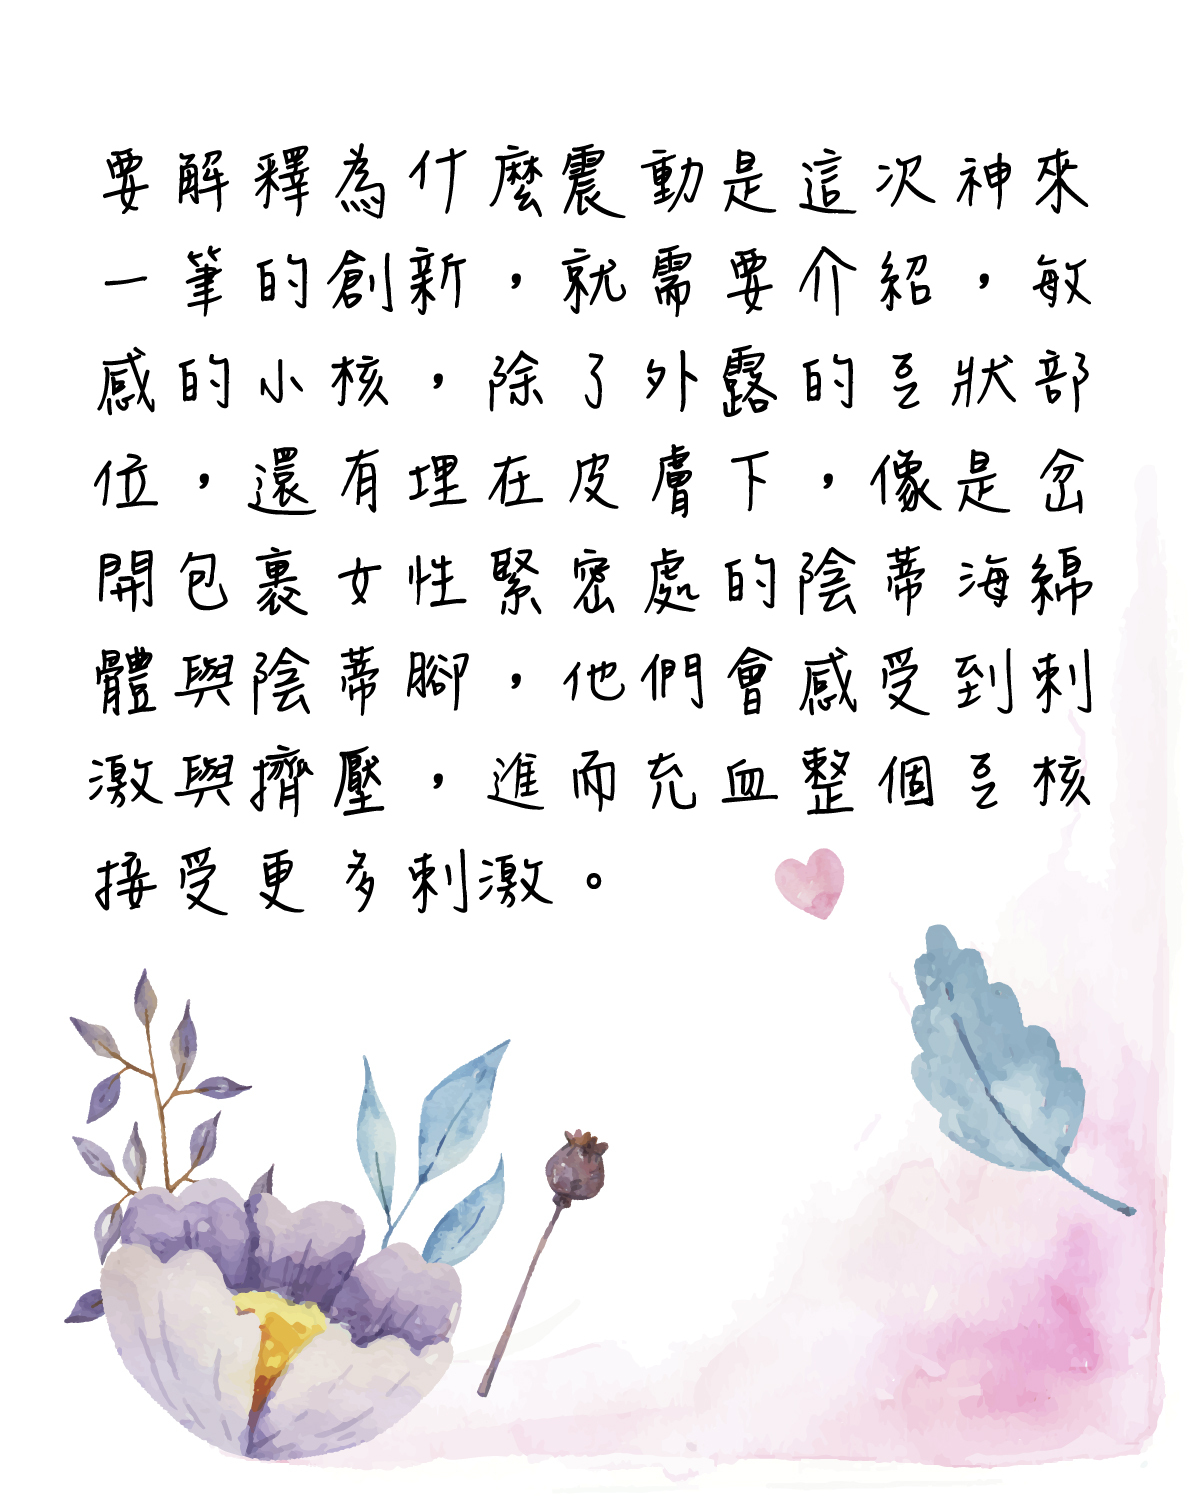 要解釋為什麼震動是這次神來
一筆的創新，就需要介紹，敏
感的小核，除了外露的豆狀部
位，還有埋在皮膚下，像是岔
開包裹女性緊密處的陰蒂海綿
體與陰蒂腳，他們會感受到刺
激與擠壓，進而充血整個豆核
接受更多刺激。